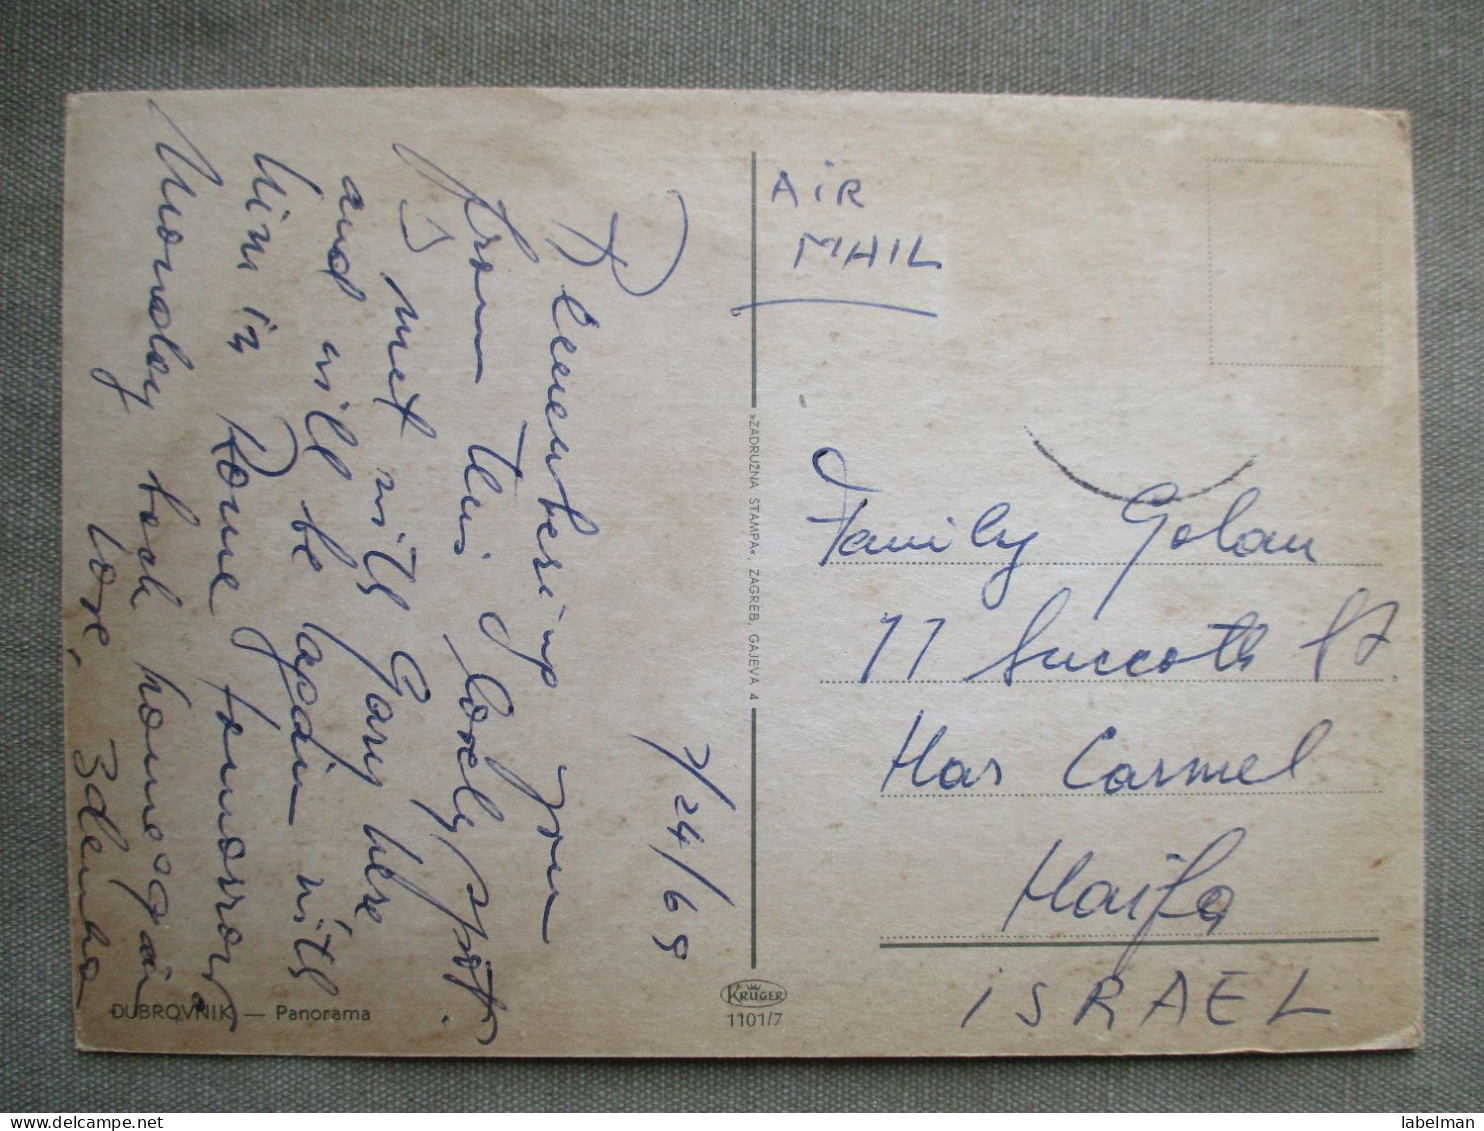 7/24/69
Remembering you
from this lovely spot.
I met with Gary here
and will be again with
him in Rome tomorrow.
Monday back home again
Love, Zdenka
DUBROVNIK — Panorama
»ZADRUŽNA ŠTAMPA«, ZAGREB, GAJEVA 4
KRÜGER
1101/7
AiR
MAIL
Family Golan
11 Succoth St
Har Carmel
Haifa
iSRAEL
labelman
www.delcampe.net